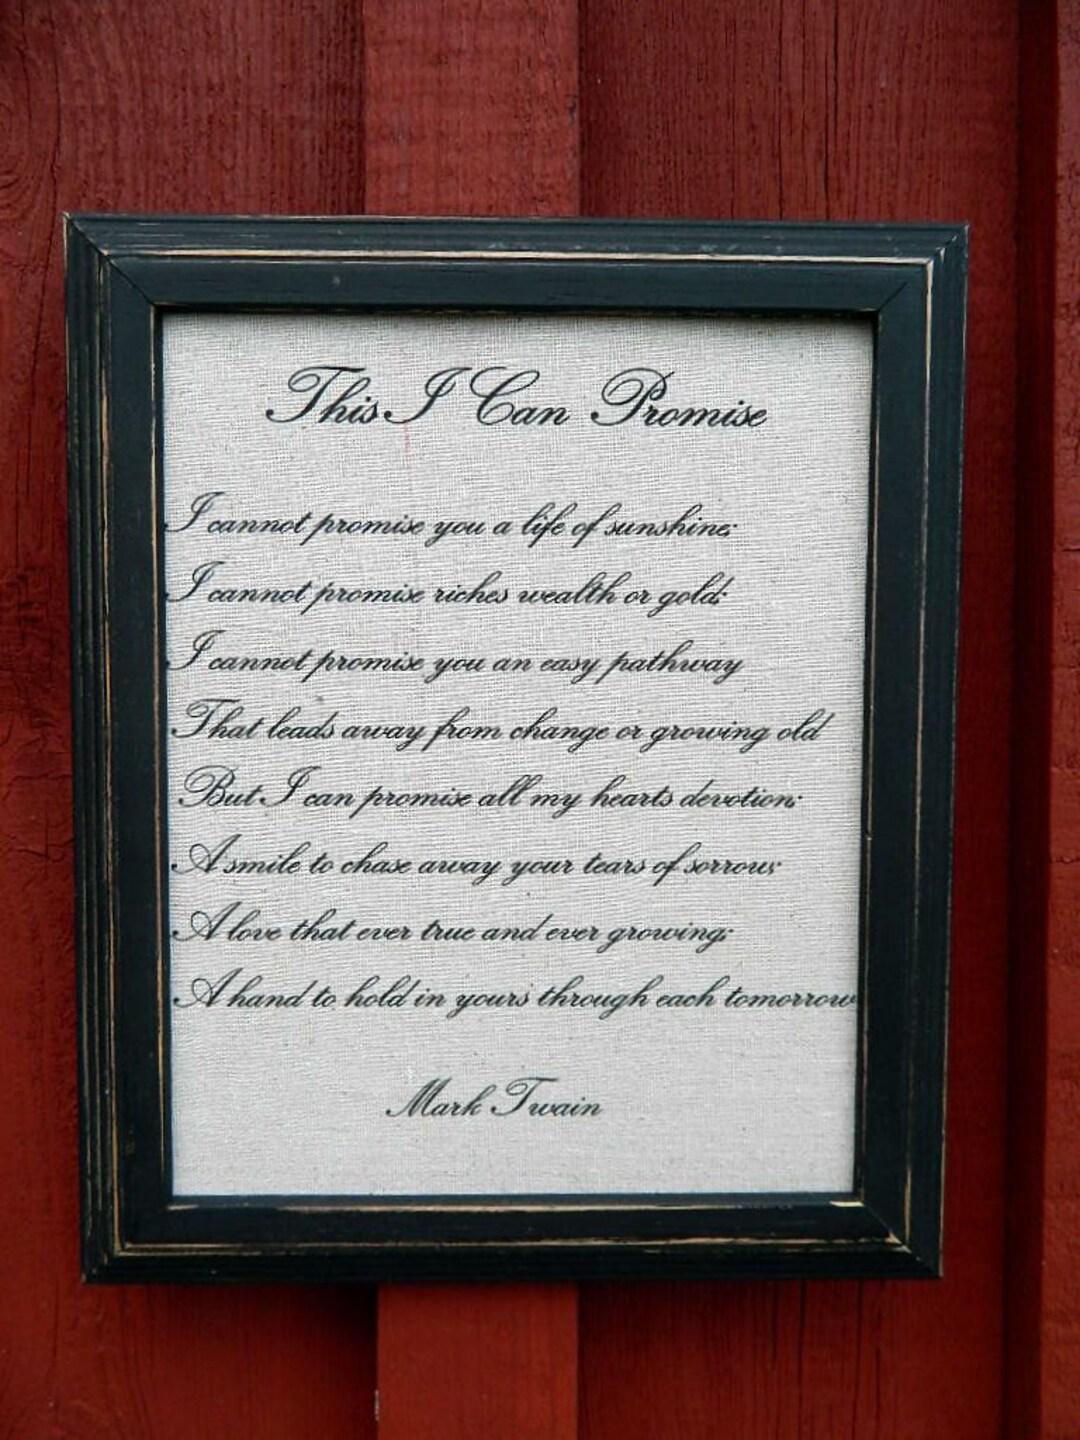 This I Can Promise
I cannot promise you a life of sunshine;
I cannot promise riches wealth or gold;
I cannot promise you an easy pathway
That leads away from change or growing old
But I can promise all my hearts devotion;
A smile to chase away your tears of sorrow;
A love that ever true and ever growing;
A hand to hold in yours through each tomorrow
Mark Twain